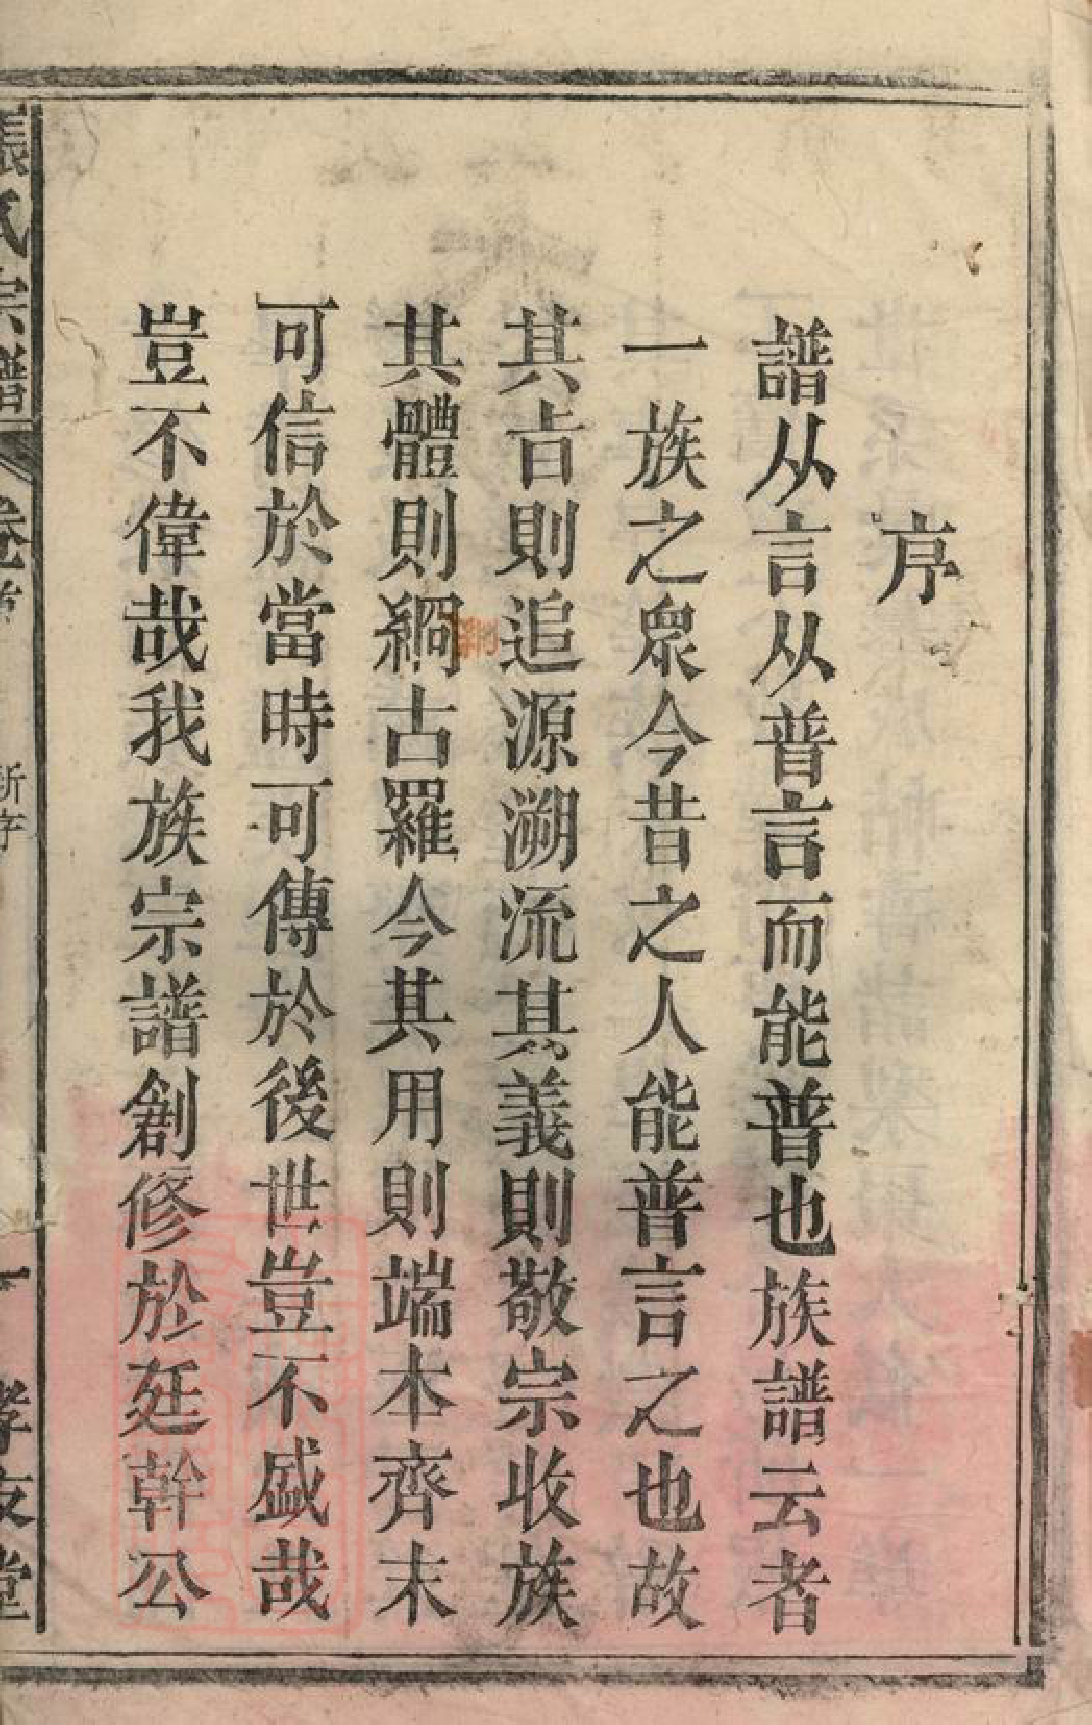 序
譜从言从普言而能普也族譜云者
一族之眾今昔之人能普言之也故
其㫖則追源溯流其義則敬宗收族
其體則綱古羅今其用則端本齊末
可信於當時可傳於後世豈不盛哉
豈不偉哉我族宗譜創修於廷幹公
張氏宗譜
卷首
新序
一
孝友堂